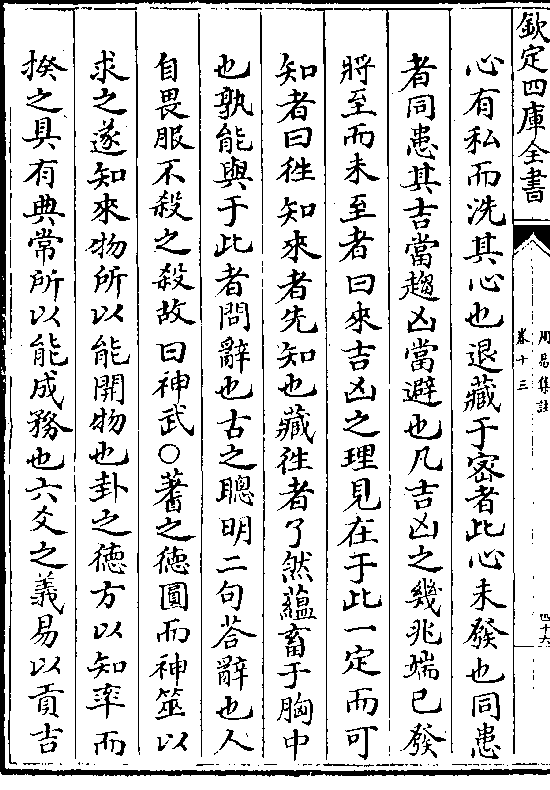 欽定四庫全書
周易集註
卷十三
四十六
心有私而洗其心也退藏于密者此心未發也同患
者同患其吉當趨凶當避也凡吉凶之幾兆端已發
將至而未至者曰來吉凶之理見在于此一定而可
知者曰徃知來者先知也藏徃者了然蘊畜于胸中
也孰能與于此者問辭也古之聰明二句荅辭也人
自畏服不殺之殺故曰神武○蓍之德圓而神筮以
求之遂知來物所以能開物也卦之德方以知率而
揆之具有典常所以能成務也六爻之義易以貢吉